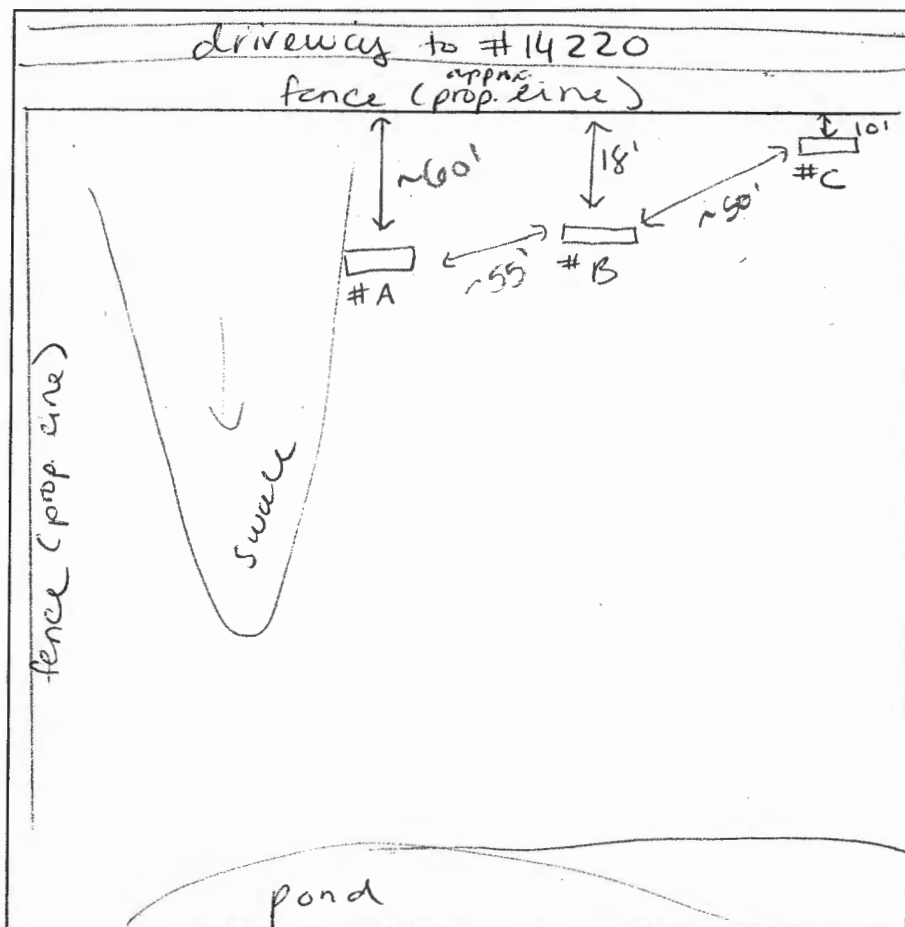 driveway to #14220
approx.
fence (prop. line)
~60'
18'
10'
#C
~50'
~55'
#A
#B
fence (prop. line)
swale
pond